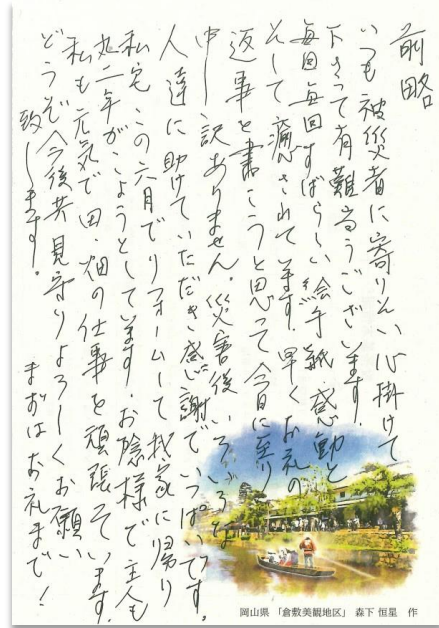 前略
いつも被災者に寄りそい心掛けて
下さって有難うございます。
毎回毎回すばらしい絵手紙感動と
そして癒されています。早くお礼の
返事を書こうと思って今日に至り
申し訳ありません。災害後いろいろな
人達に助けていただき感謝でいっぱいです。
私宅この六月でリフォームして我家に帰り
丸二年がこようとしています。お陰様で主人も
私も元気で田・畑の仕事を頑張っています。
どうぞ今後共見守りよろしくお願い
致します。
まずはお礼まで!
岡山県 「倉敷美観地区」 森下 恒星 作